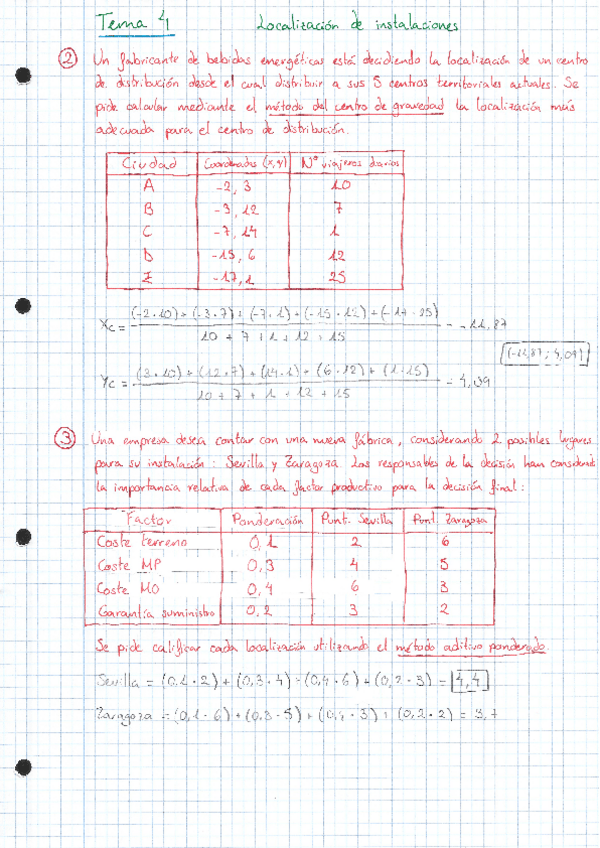 Tema 4 Localización de instalaciones
② Un fabricante de bebidas energéticas está decidiendo la localización de un centro
de distribución desde el cual distribuir a sus 5 centros territoriales actuales. Se
pide calcular mediante el método del centro de gravedad la localización más
adecuada para el centro de distribución.
Ciudad Coordenadas (x,y) Nº viajeros diarios
A -2, 3 10
B -3, 12 7
C -7, 14 1
D -15, 6 12
E -17, 1 25
Xc = (-2·10) + (-3·7) + (-7·1) + (-15·12) + (-17·25) / 10 + 7 + 1 + 12 + 15 = -11,87
(-11,87 ; 4,09)
Yc = (3·10) + (12·7) + (14·1) + (6·12) + (1·15) / 10 + 7 + 1 + 12 + 15 = 4,09
③ Una empresa desea contar con una nueva fábrica, considerando 2 posibles lugares
para su instalación: Sevilla y Zaragoza. Los responsables de la decisión han considerado
la importancia relativa de cada factor productivo para la decisión final:
Factor Ponderación Punt. Sevilla Punt. Zaragoza
Coste terreno 0,1 2 6
Coste MP 0,3 4 5
Coste MO 0,4 6 3
Garantía suministro 0,2 3 2
Se pide calificar cada localización utilizando el método aditivo ponderado.
Sevilla = (0,1·2) + (0,3·4) + (0,4·6) + (0,2·3) = 4,4
Zaragoza = (0,1·6) + (0,3·5) + (0,4·3) + (0,2·2) = 3,7